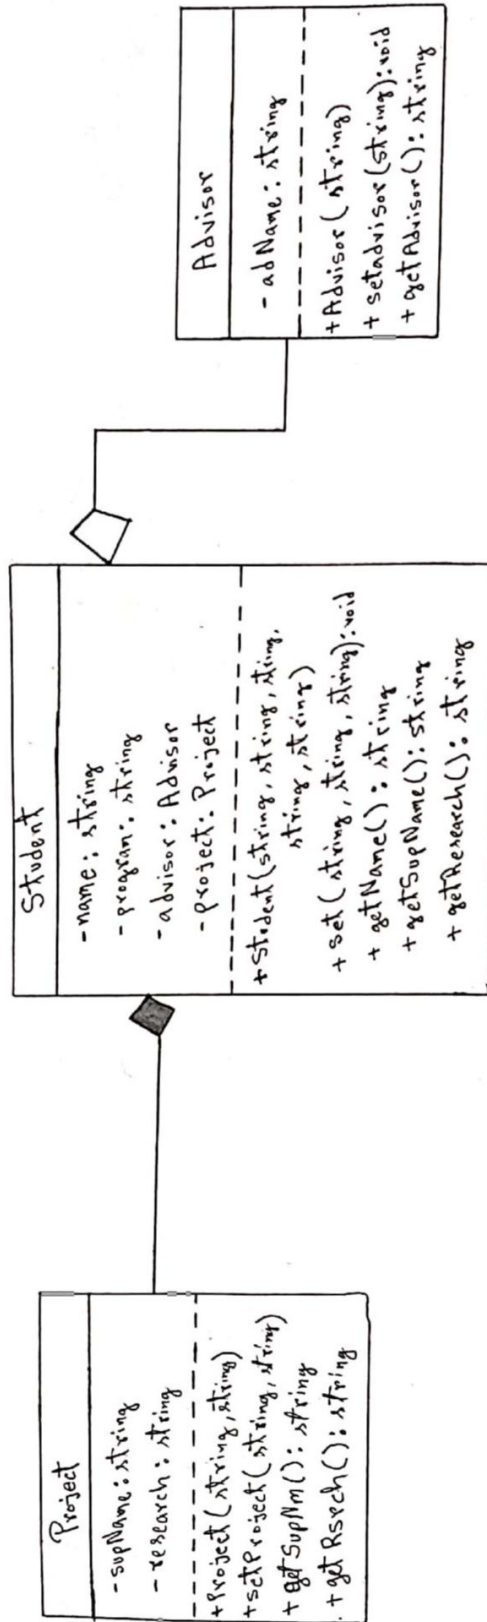 Project
-supName:string
-research:string
+Project(string,string)
+setProject(string,string)
+getSupNm():string
+getRsrch():string
Student
-name:string
-program:string
-advisor:Advisor
-project:Project
+Student(string,string,string,
string,string)
+set(string,string,string):void
+getName():string
+getSupName():string
+getResearch():string
Advisor
-adName:string
+Advisor(string)
+setadvisor(string):void
+getAdvisor():string